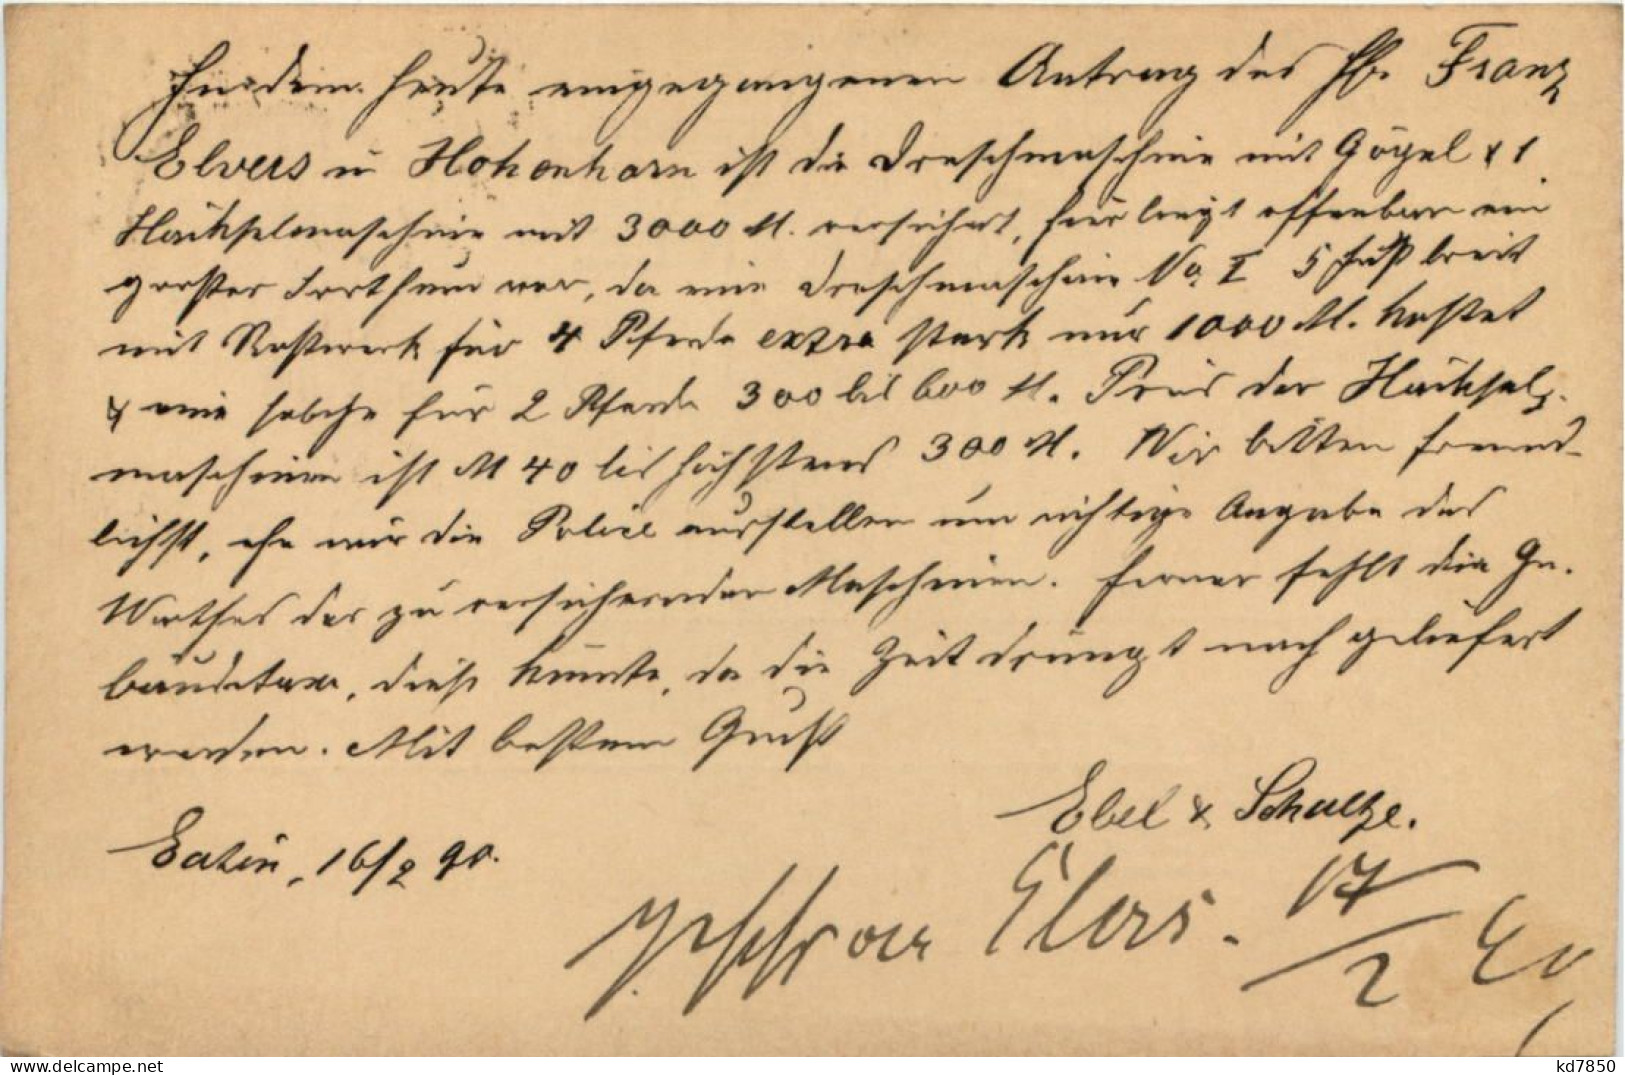 In dem heute eingegangenen Antrag des Hr. Franz
Elvers in Hohenhorn ist die Dreschmaschine mit Göpel & 1
Häckselmaschine mit 3000 M. versichert, hier liegt offenbar ein
grosser Irrthum vor, da eine Dreschmaschine No I 5 Fuß breit
mit Roßwerk für 4 Pferde extra stark nur 1000 M. kostet
& eine solche für 2 Pferde 300 bis 600 M. Preis der Häcksel-
maschinen ist M 40 bis höchstens 300 M. Wir bitten freund-
lichst, ehe wir die Police ausstellen um richtige Angabe des
Werthes der zu versichernden Maschinen. Ferner fehlt die Ge-
bäudetaxe, diese könnte, da die Zeit drängt nach geliefert
werden. Mit bestem Gruß
Ebel & Schultze.
Eutin, 16/2 90.
Elvers. 17/2
kd7850